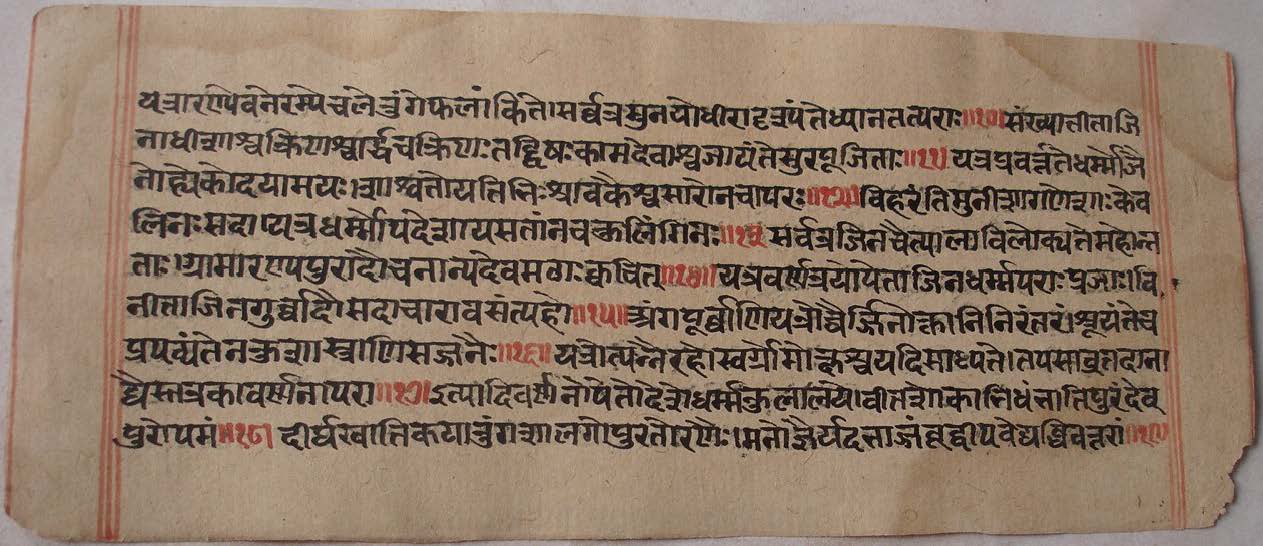 यत्रारण्येवनेरम्येचलेतुंगेफलांकिते।सर्वत्रमुनयोधीरादृश्यंतेध्यानतत्पराः॥१०॥संख्यातीताजि
नाधीशाश्चक्रिणश्चार्द्धचक्रिणः।तद्द्विषःकामदेवाश्चजायंतेसुरपूजिताः॥११॥यत्रप्रवर्त्ततेधर्म्मोजै
नोह्येकोदयामयः।शाश्वतोयतिभिःश्रावकैश्चसारोनचापरः॥१२॥विहरंतिमुनीशागणेशाःकेव
लिनःसदा।यत्रधर्म्मोपदेशायसतांनचकुलिंगिनः॥१३॥सर्वत्रजिनचैत्यालाविलोक्यतेमहोन्न
ताः।ग्रामारण्यपुरादौचनान्यदेवमठाःक्वचित्॥१४॥यत्रवर्णत्रयोपेताजिनधर्म्मपराःप्रजाः।वि
नीताजिनगुर्व्वादौसदाचारावसंत्यहो॥१५॥अंगपूर्व्वाणियत्रोच्चैर्जिनोक्तानिनिरंतरं।श्रूयंतेच
प्रपठ्यंतेनकुशास्त्राणिसज्जनैः॥१६॥यत्रोत्पन्नैरहोस्वर्गोमोक्षश्चयदिसाध्यते।तपसाव्रतदाना
द्यैस्तत्रकावर्णनापरा॥१७॥इत्यादिवर्णनोपेतोदेशेधर्म्मकुलालये।वीतशोकाभिधंभातिपुरंदेव
पुरोपमं॥१८॥दीर्घखातिकयातुंगशालगोपुरतोरणैः।मनोज्ञैर्यद